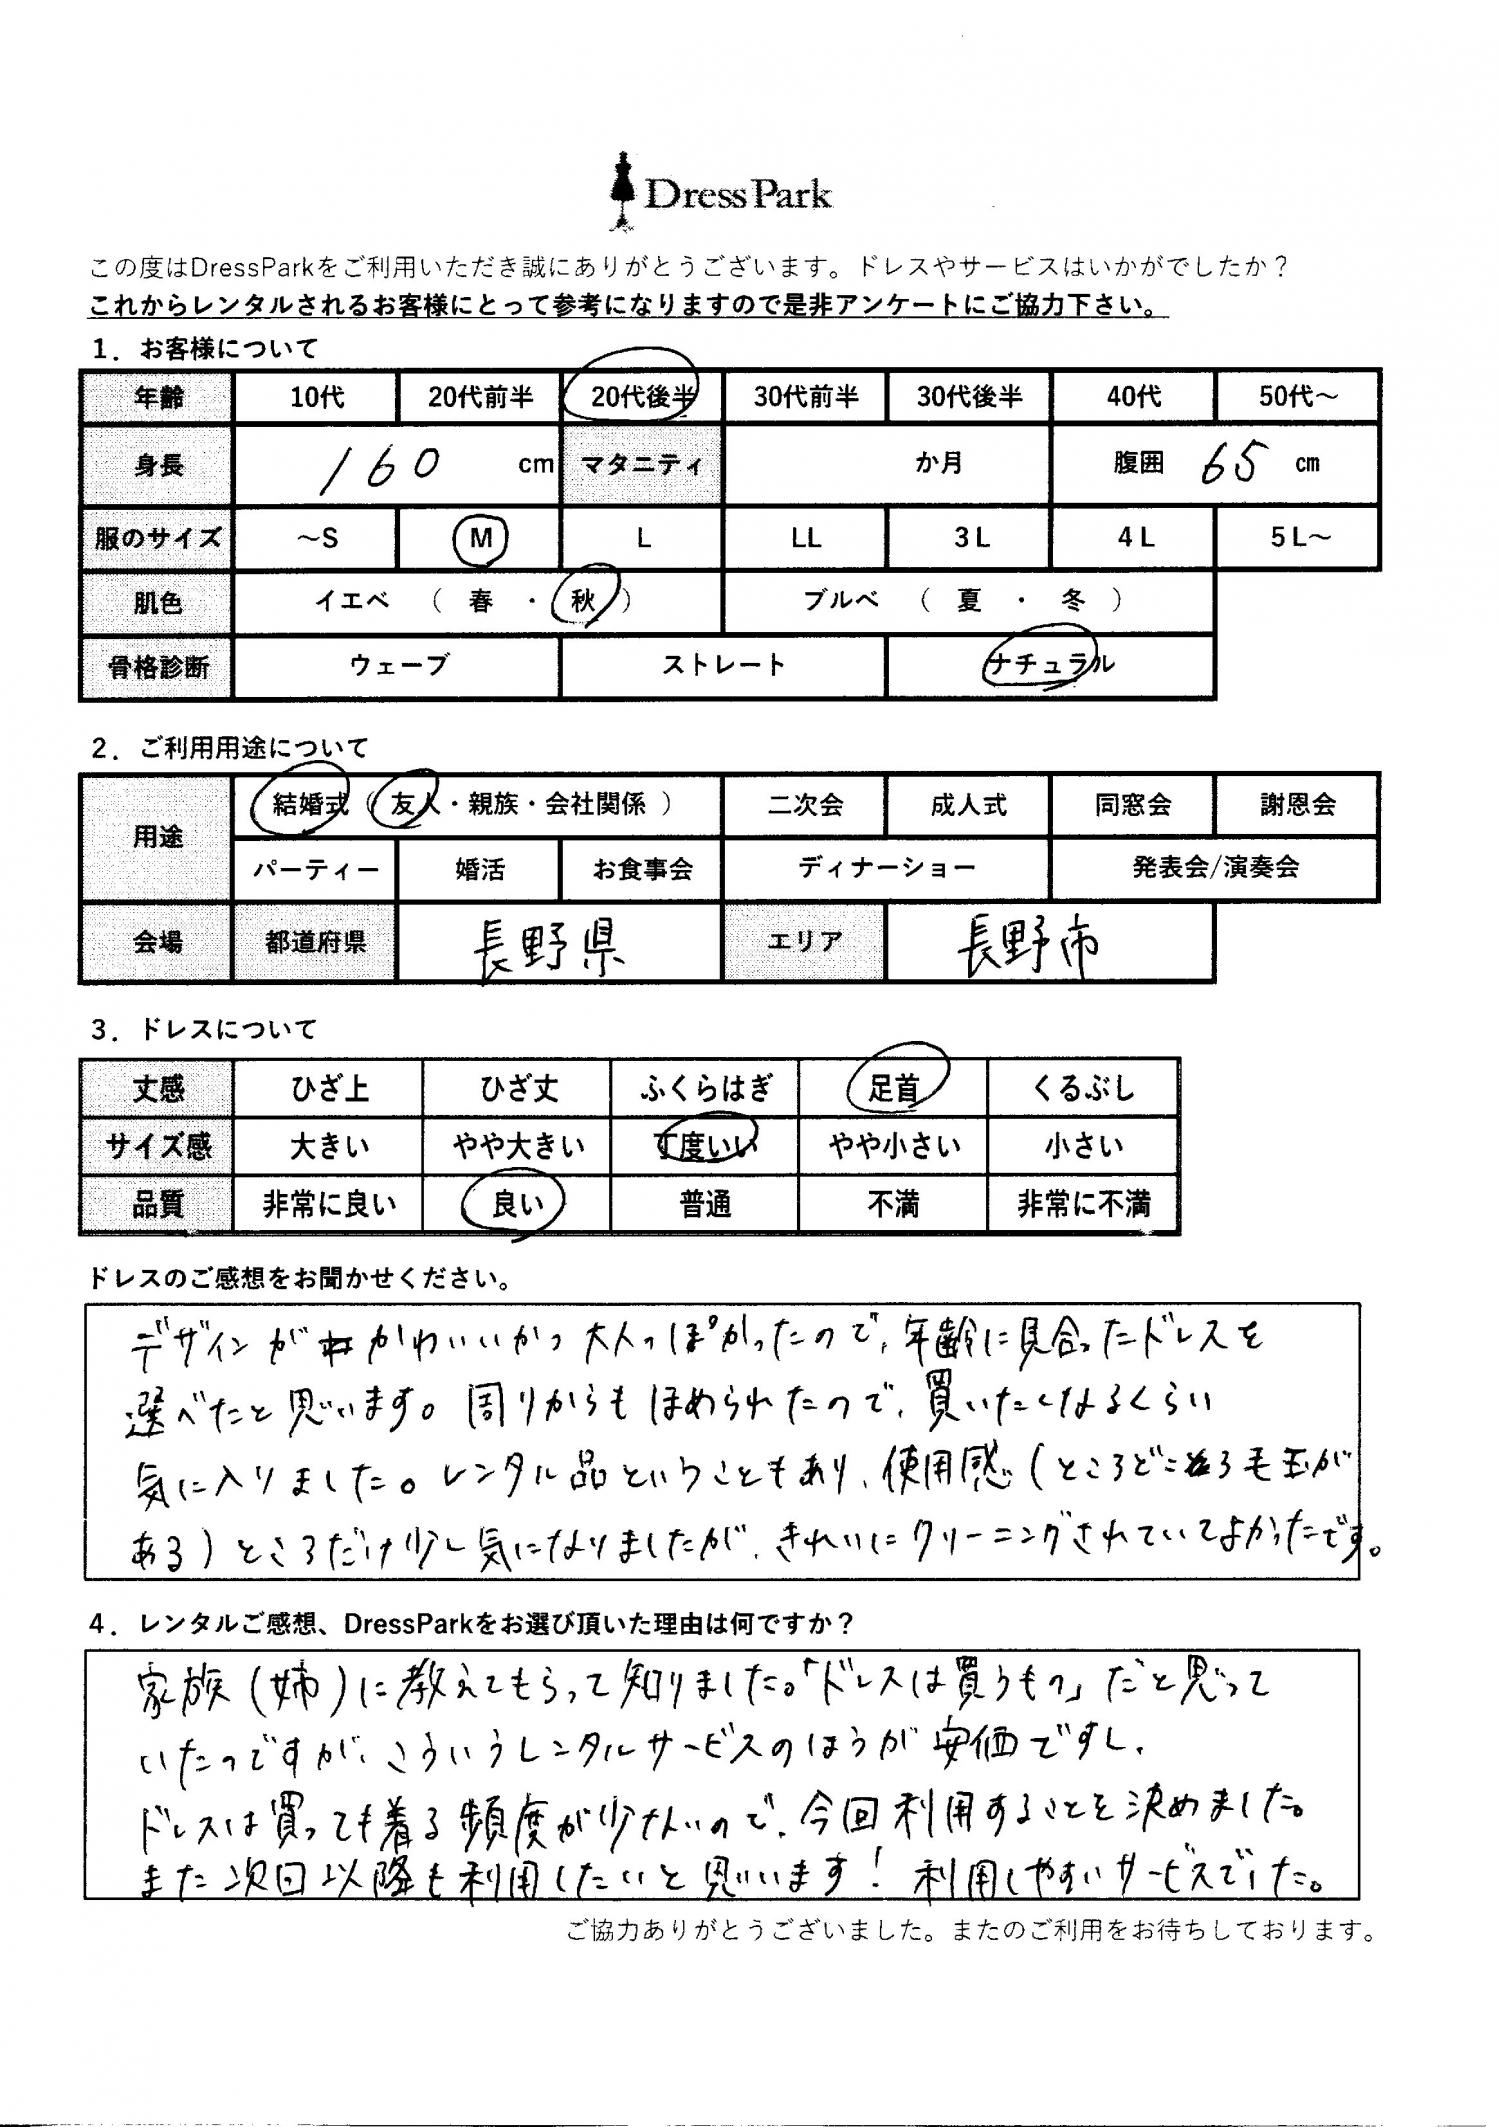 DressPark
この度はDressParkをご利用いただき誠にありがとうございます。ドレスやサービスはいかがでしたか？
これからレンタルされるお客様にとって参考になりますので是非アンケートにご協力下さい。
1．お客様について
年齢 10代 20代前半 20代後半 30代前半 30代後半 40代 50代～
身長 160 cm マタニティ か月 腹囲 65 cm
服のサイズ ～S M L LL 3L 4L 5L～
肌色 イエベ （ 春 ・ 秋 ） ブルベ （ 夏 ・ 冬 ）
骨格診断 ウェーブ ストレート ナチュラル
2．ご利用用途について
用途 結婚式（ 友人・親族・会社関係 ） 二次会 成人式 同窓会 謝恩会
パーティー 婚活 お食事会 ディナーショー 発表会/演奏会
会場 都道府県 長野県 エリア 長野市
3．ドレスについて
丈感 ひざ上 ひざ丈 ふくらはぎ 足首 くるぶし
サイズ感 大きい やや大きい 丁度いい やや小さい 小さい
品質 非常に良い 良い 普通 不満 非常に不満
ドレスのご感想をお聞かせください。
デザインがかわいいかつ大人っぽかったので、年齢に見合ったドレスを
選べたと思います。周りからもほめられたので、買いたくなるくらい
気に入りました。レンタル品ということもあり、使用感（ところどころ毛玉が
ある）ところだけ少し気になりましたが、きれいにクリーニングされていてよかったです。
4．レンタルご感想、DressParkをお選び頂いた理由は何ですか？
家族（姉）に教えてもらって知りました。「ドレスは買うもの」だと思って
いたのですが、こういうレンタルサービスのほうが安価ですし、
ドレスは買っても着る頻度が少ないので、今回利用することを決めました。
また次回以降も利用したいと思います！利用しやすいサービスでした。
ご協力ありがとうございました。またのご利用をお待ちしております。